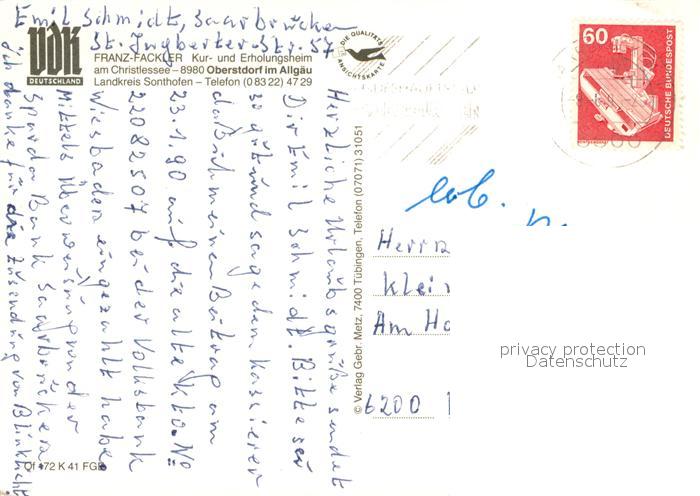 Emil Schmidt, Saarbrücken
St. Ingberter-Str. 57
VDK
DEUTSCHLAND
FRANZ-FACKLER Kur- und Erholungsheim
am Christlessee – 8980 Oberstdorf im Allgäu
Landkreis Sonthofen – Telefon (0 83 22) 47 29
DIE QUALITÄTS
ANSICHTSKARTE
60
DEUTSCHE BUNDESPOST
Herzliche Urlaubsgrüße sendet
Dir Emil Schmidt. Bitte sei
so gut und sage dem Kassierer
daß ich meinen Beitrag am
23.1.90 auf die alte Kto. No
22082507 bei der Volksbank
Wiesbaden eingezahlt habe
Mittels Überweisung von der
Sparda Bank Saarbrücken
Ich danke für die Zusendung von Blinklicht
© Verlag Gebr. Metz, 7400 Tübingen, Telefon (07071) 31051
Herrn
Klei
Am Ho
6200
privacy protection
Datenschutz
Of 472 K 41 FGB